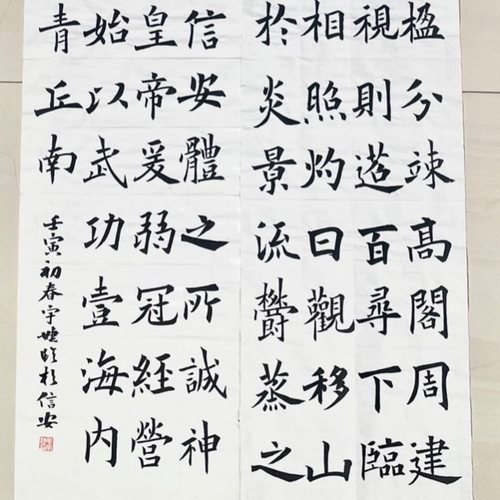 楹分竦高閣周建
視則迢百尋下臨
相照灼日觀移山
於炎景流鬱蒸之
信安體之所誠神
皇帝爰弱冠經營
始以武功壹海內
青丘南
壬寅初春宇婕臨於信安